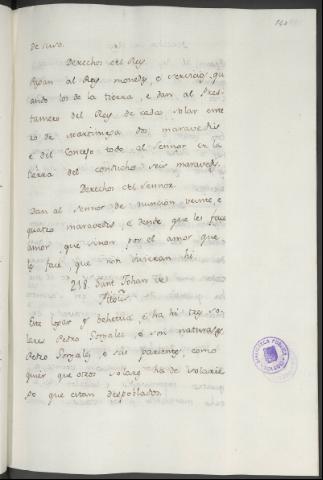 de suso.
Derechos del Rey
Pagan al Rey moneda, e servicios qu
ando los de la tierra, e dan al Pres-
tamero del Rey de cada solar ente
ro de martiniega dos maravedis
e del Concejo todo al Sennor en la
tierra del conducho seis maraveds.
Derechos del Sennor
Dan al sennor de nuncion veinte, e
quatro maravedis, e dende que les face
amor, que vinan por el amor que
les face, que non viviran hi
218. Sant Johan de
Este logar es behetria, e ha hi tres so
lares Petro Gonzales, e son naturales
Petro Gonzales, e sus parientes, como
quier que otros solares ha de solarie
go que estan despoblados.